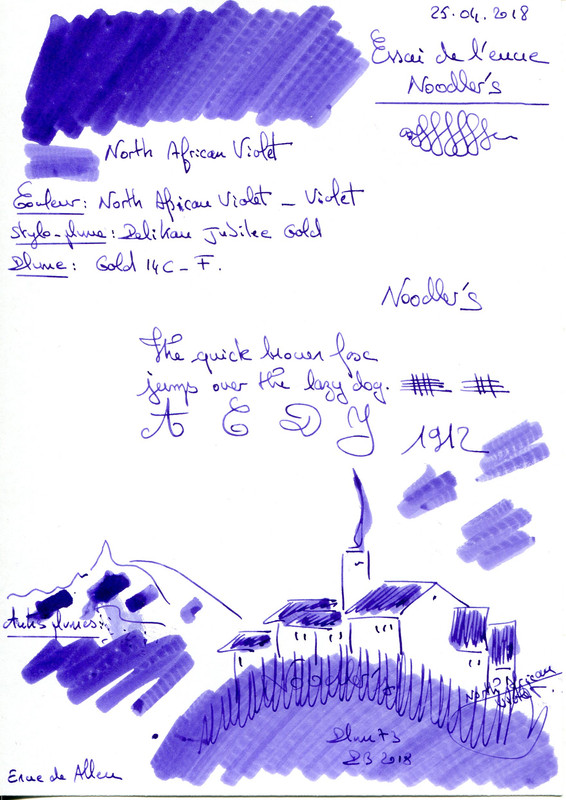 25.04.2018
Essai de l'encre
Noodler's
North African Violet
Couleur: North African Violet - Violet
Stylo-plume: Pelikan Jubilee Gold
Plume: Gold 14C - F.
Noodler's
The quick brown fox
jumps over the lazy dog.
A E D Y
1912
Autres plumes:
Noodler's
North African
Violet
Plume 73
2018